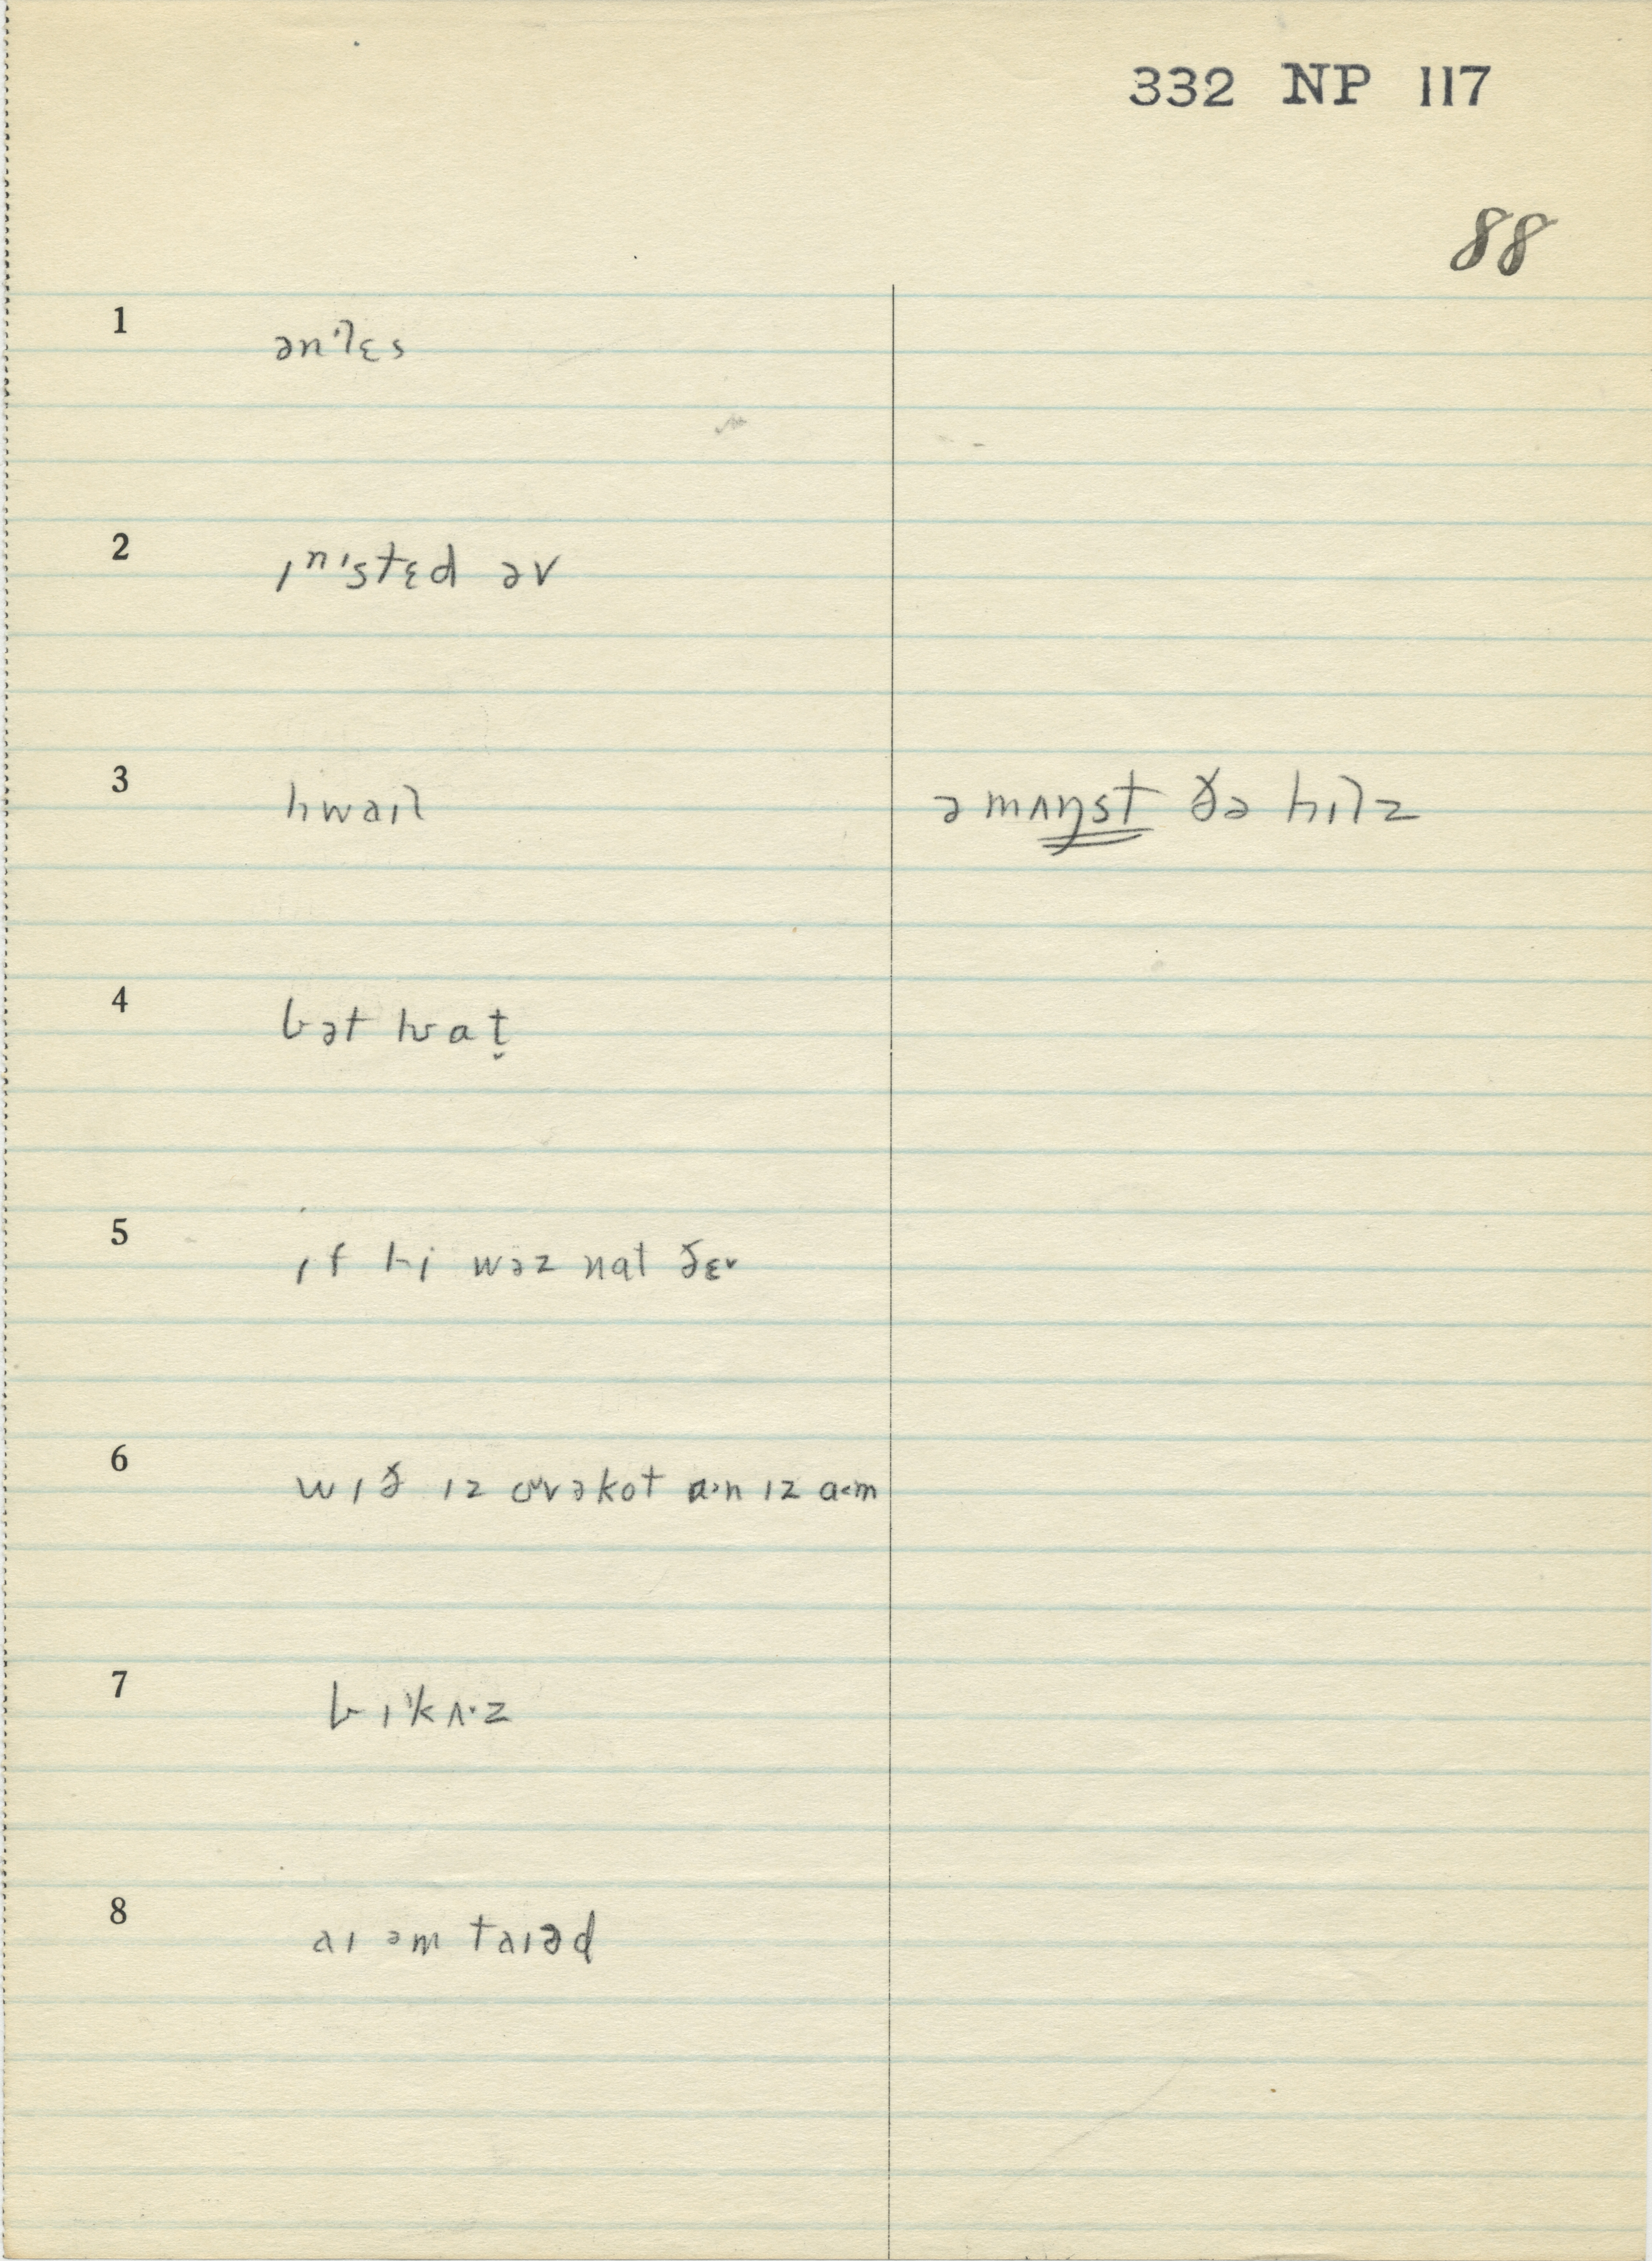 332 NP 117
88
1 ənˈlɛs
2 ɪnˈstɛd əv
3 hwaɪl əmʌŋst ðə hɪlz
4 bət hwɑt̬
5 ɪf hi wəz nɑt ðɛɚ
6 wɪð ɪz kot ɪz
7 bɪˈkʌ·z
8 aɪ əm taɪəd